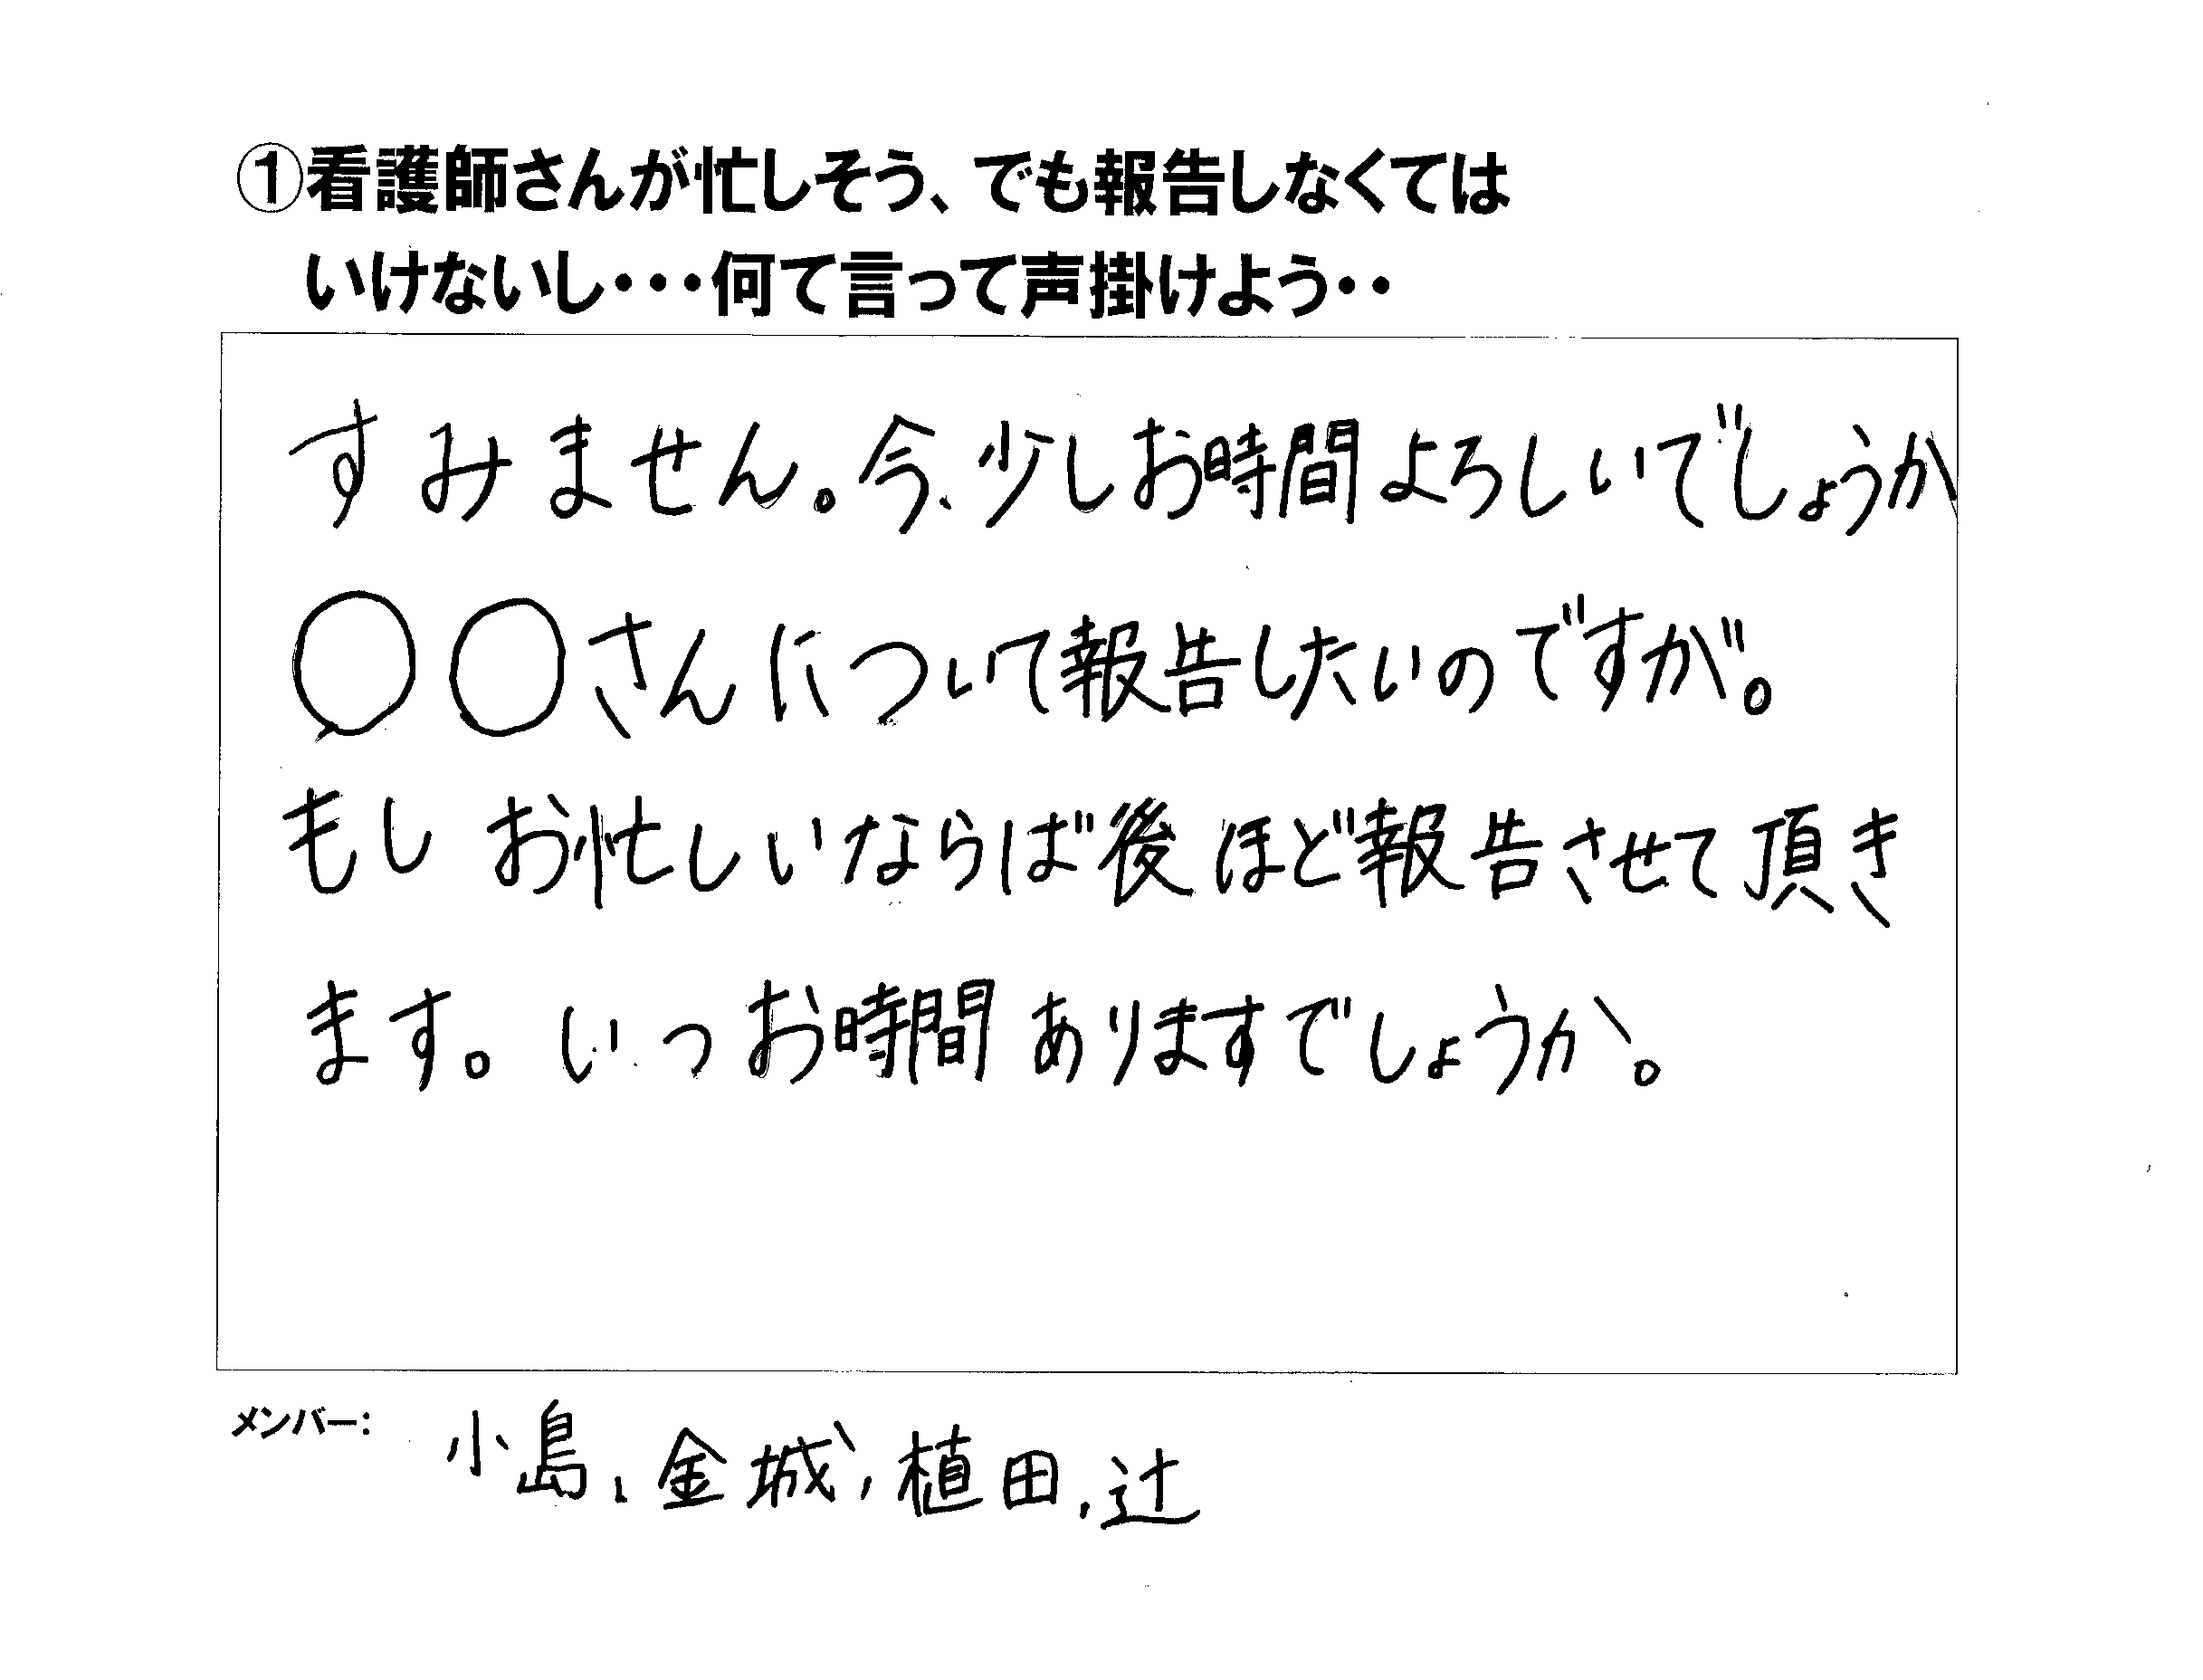 ①看護師さんが忙しそう、でも報告しなくては
いけないし・・・何て言って声掛けよう・・
すみません。今、少しお時間よろしいでしょうか
○○さんについて報告したいのですが。
もしお忙しいならば後ほど報告させて頂き
ます。いつお時間ありますでしょうか。
メンバー： 小島、金城、植田、辻